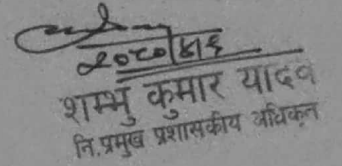 २०८०/४/६
शम्भु कुमार यादव
नि.प्रमुख प्रशासकीय अधिकृत